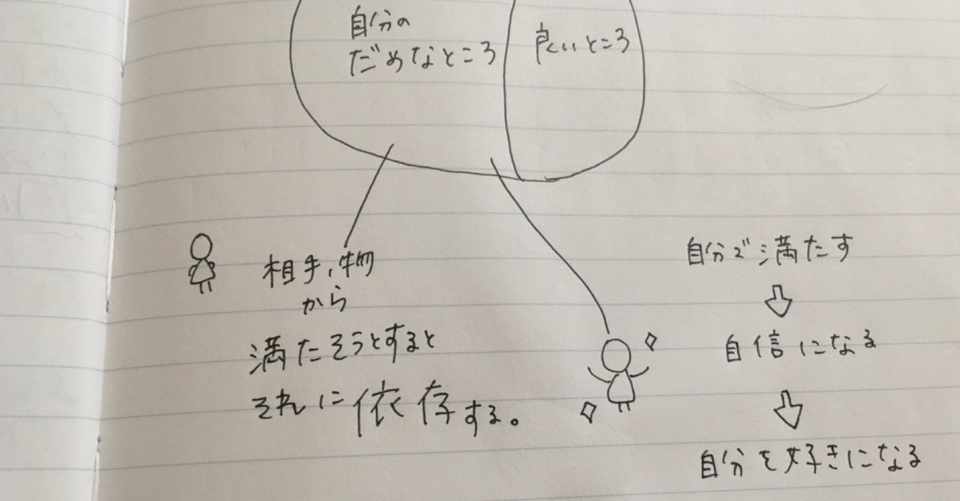 自分の
だめなところ
良いところ
相手、物
から
満たそうとすると
それに依存する。
自分で満たす
自信になる
自分を好きになる